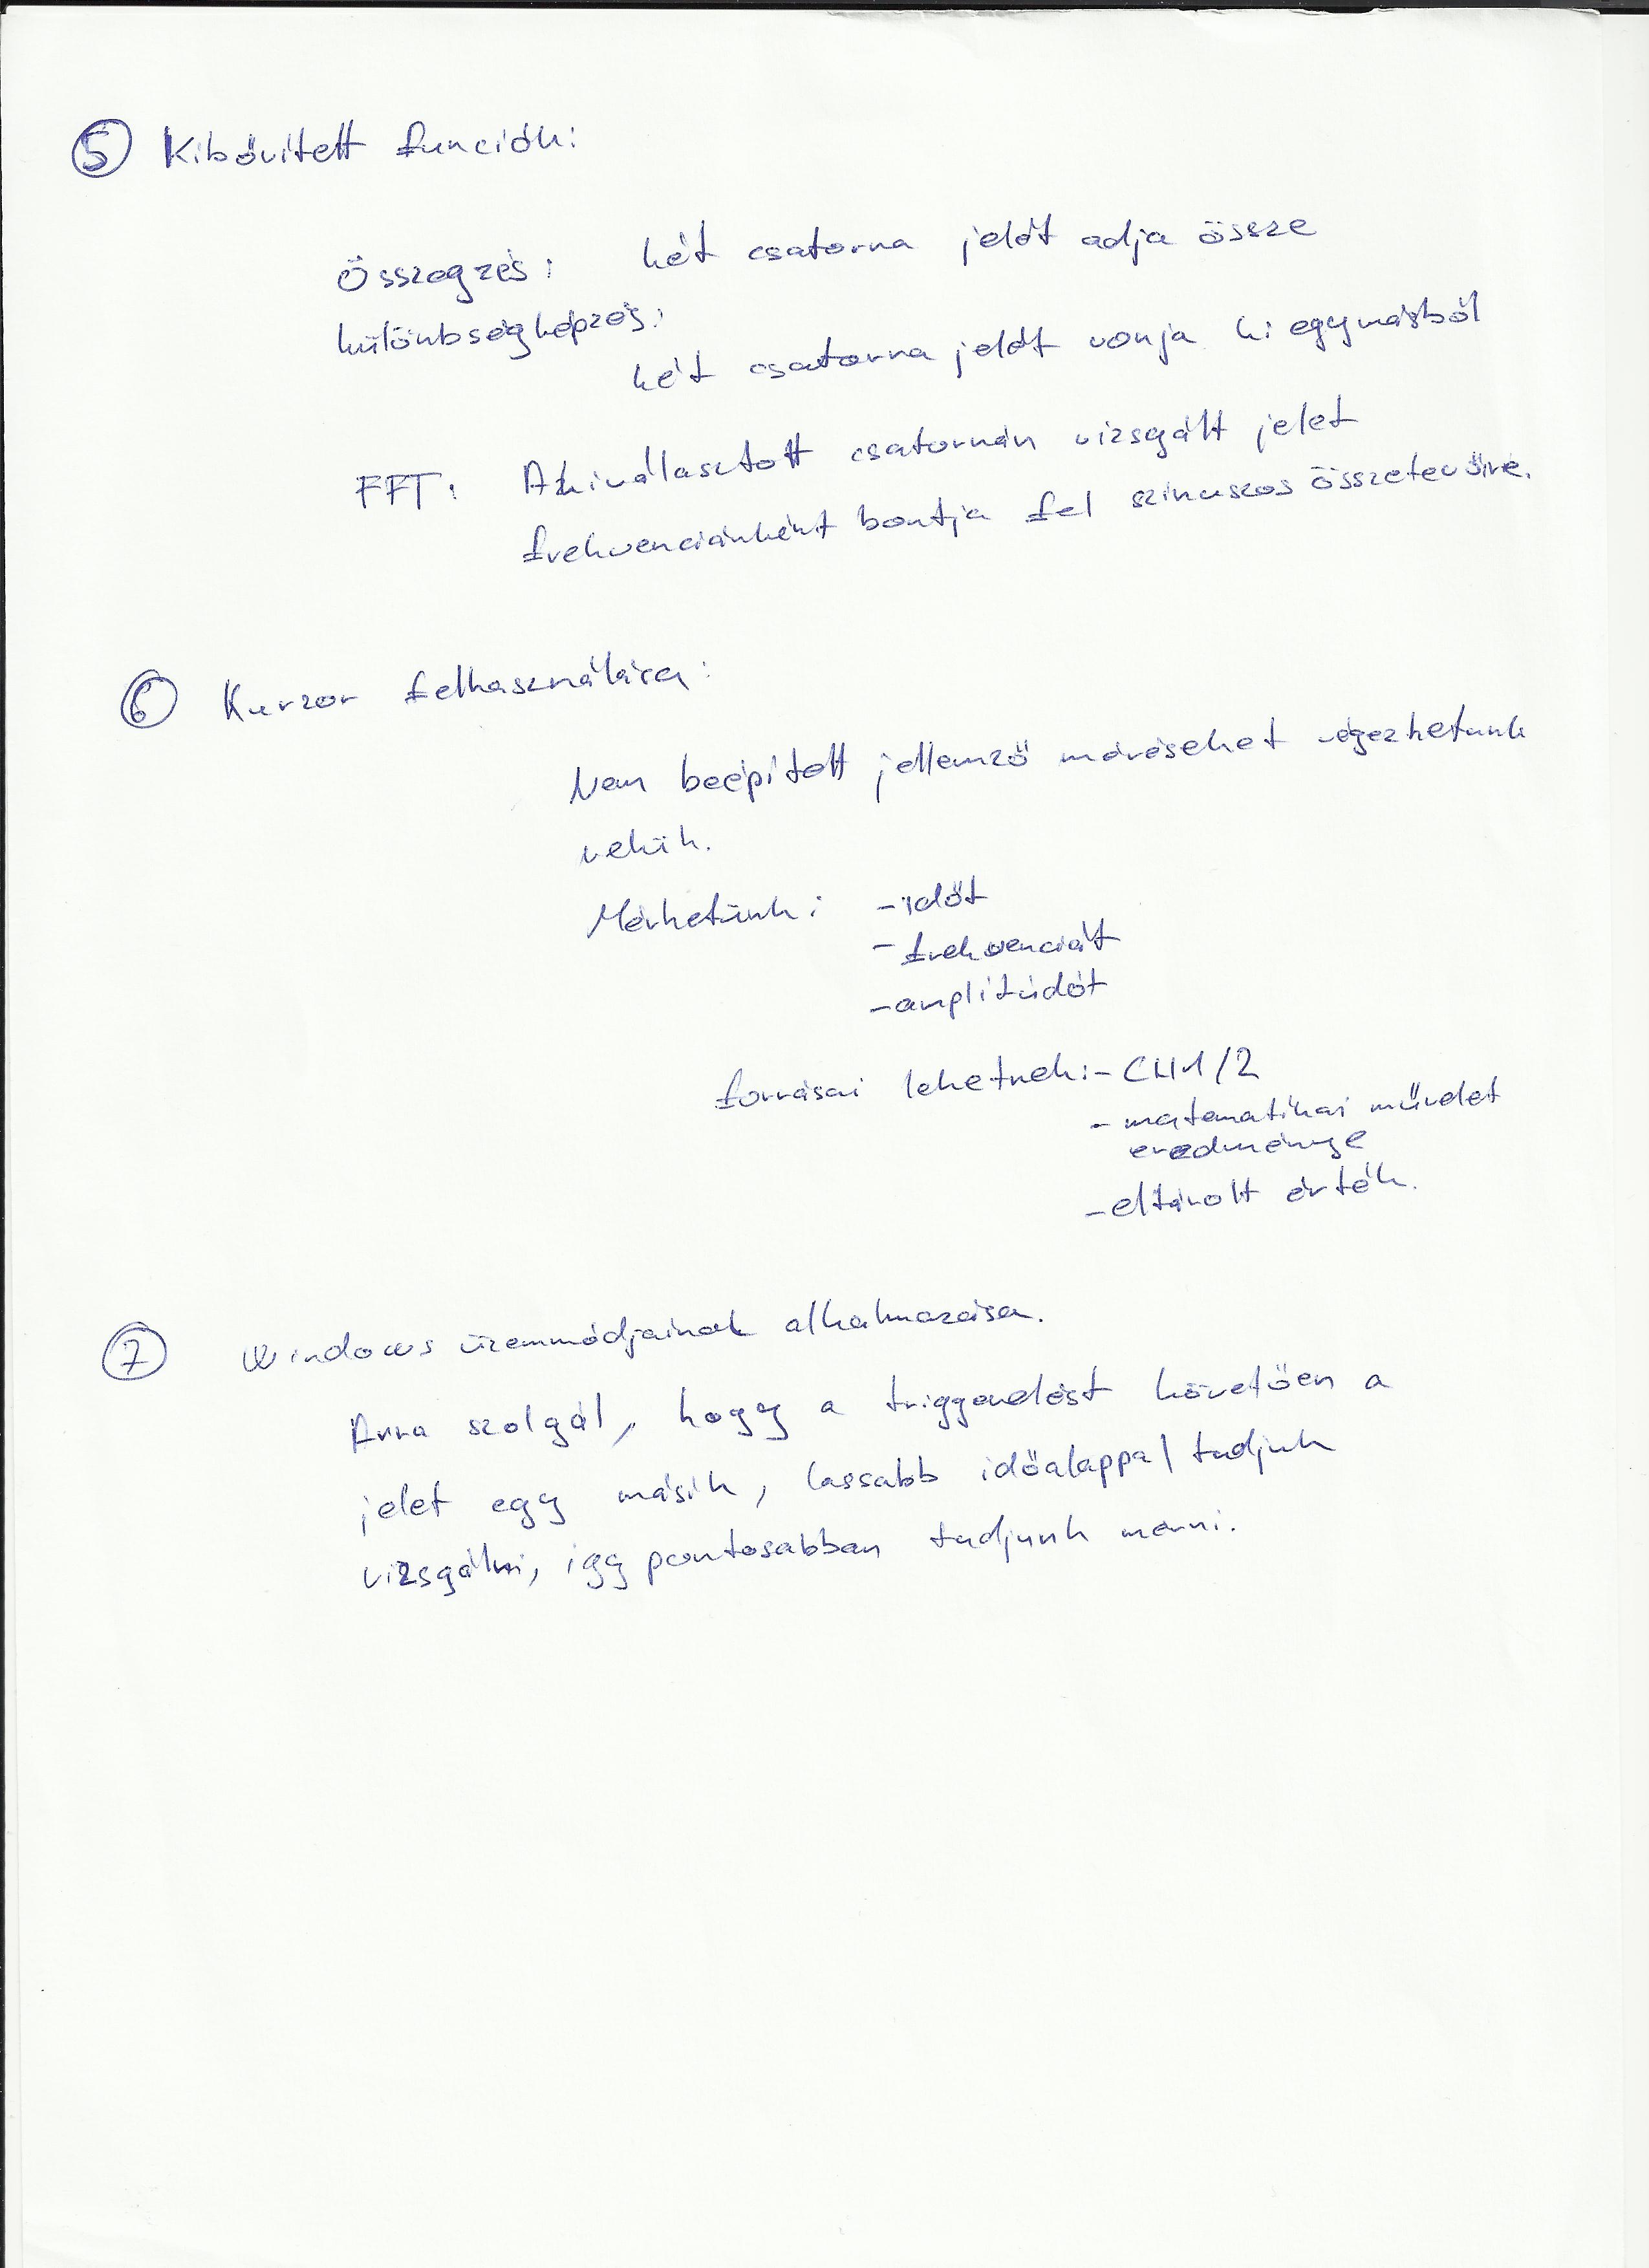 5 Kibővített funciók:
Összegzés: két csatorna jelét adja össze
különbségképzés:
két csatorna jelét vonja ki egymásból
FFT: A kiválasztott csatornán vizsgált jelet
frekvenciánként bontja fel szinuszos összetevőire.
6 Kurzor felhasználása:
Nem beépített jellemző méréseket végezhetünk
velük.
Mérhetünk: -időt
-frekvenciát
-amplitúdót
forrásai lehetnek: - CH1/2
- matematikai művelet
eredménye
- eltárolt érték.
7 Windows üzemmódjainak alkalmazása.
Arra szolgál, hogy a triggerelést követően a
jelet egy másik, lassabb időalappal tudjuk
vizsgálni, így pontosabban tudjunk mérni.